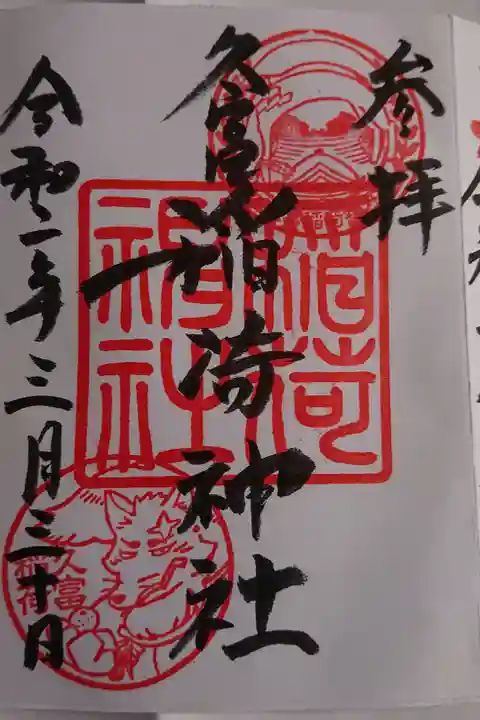 参拝
久富稲荷神社
令和二年三月三十日
稲荷神社
久富稲荷